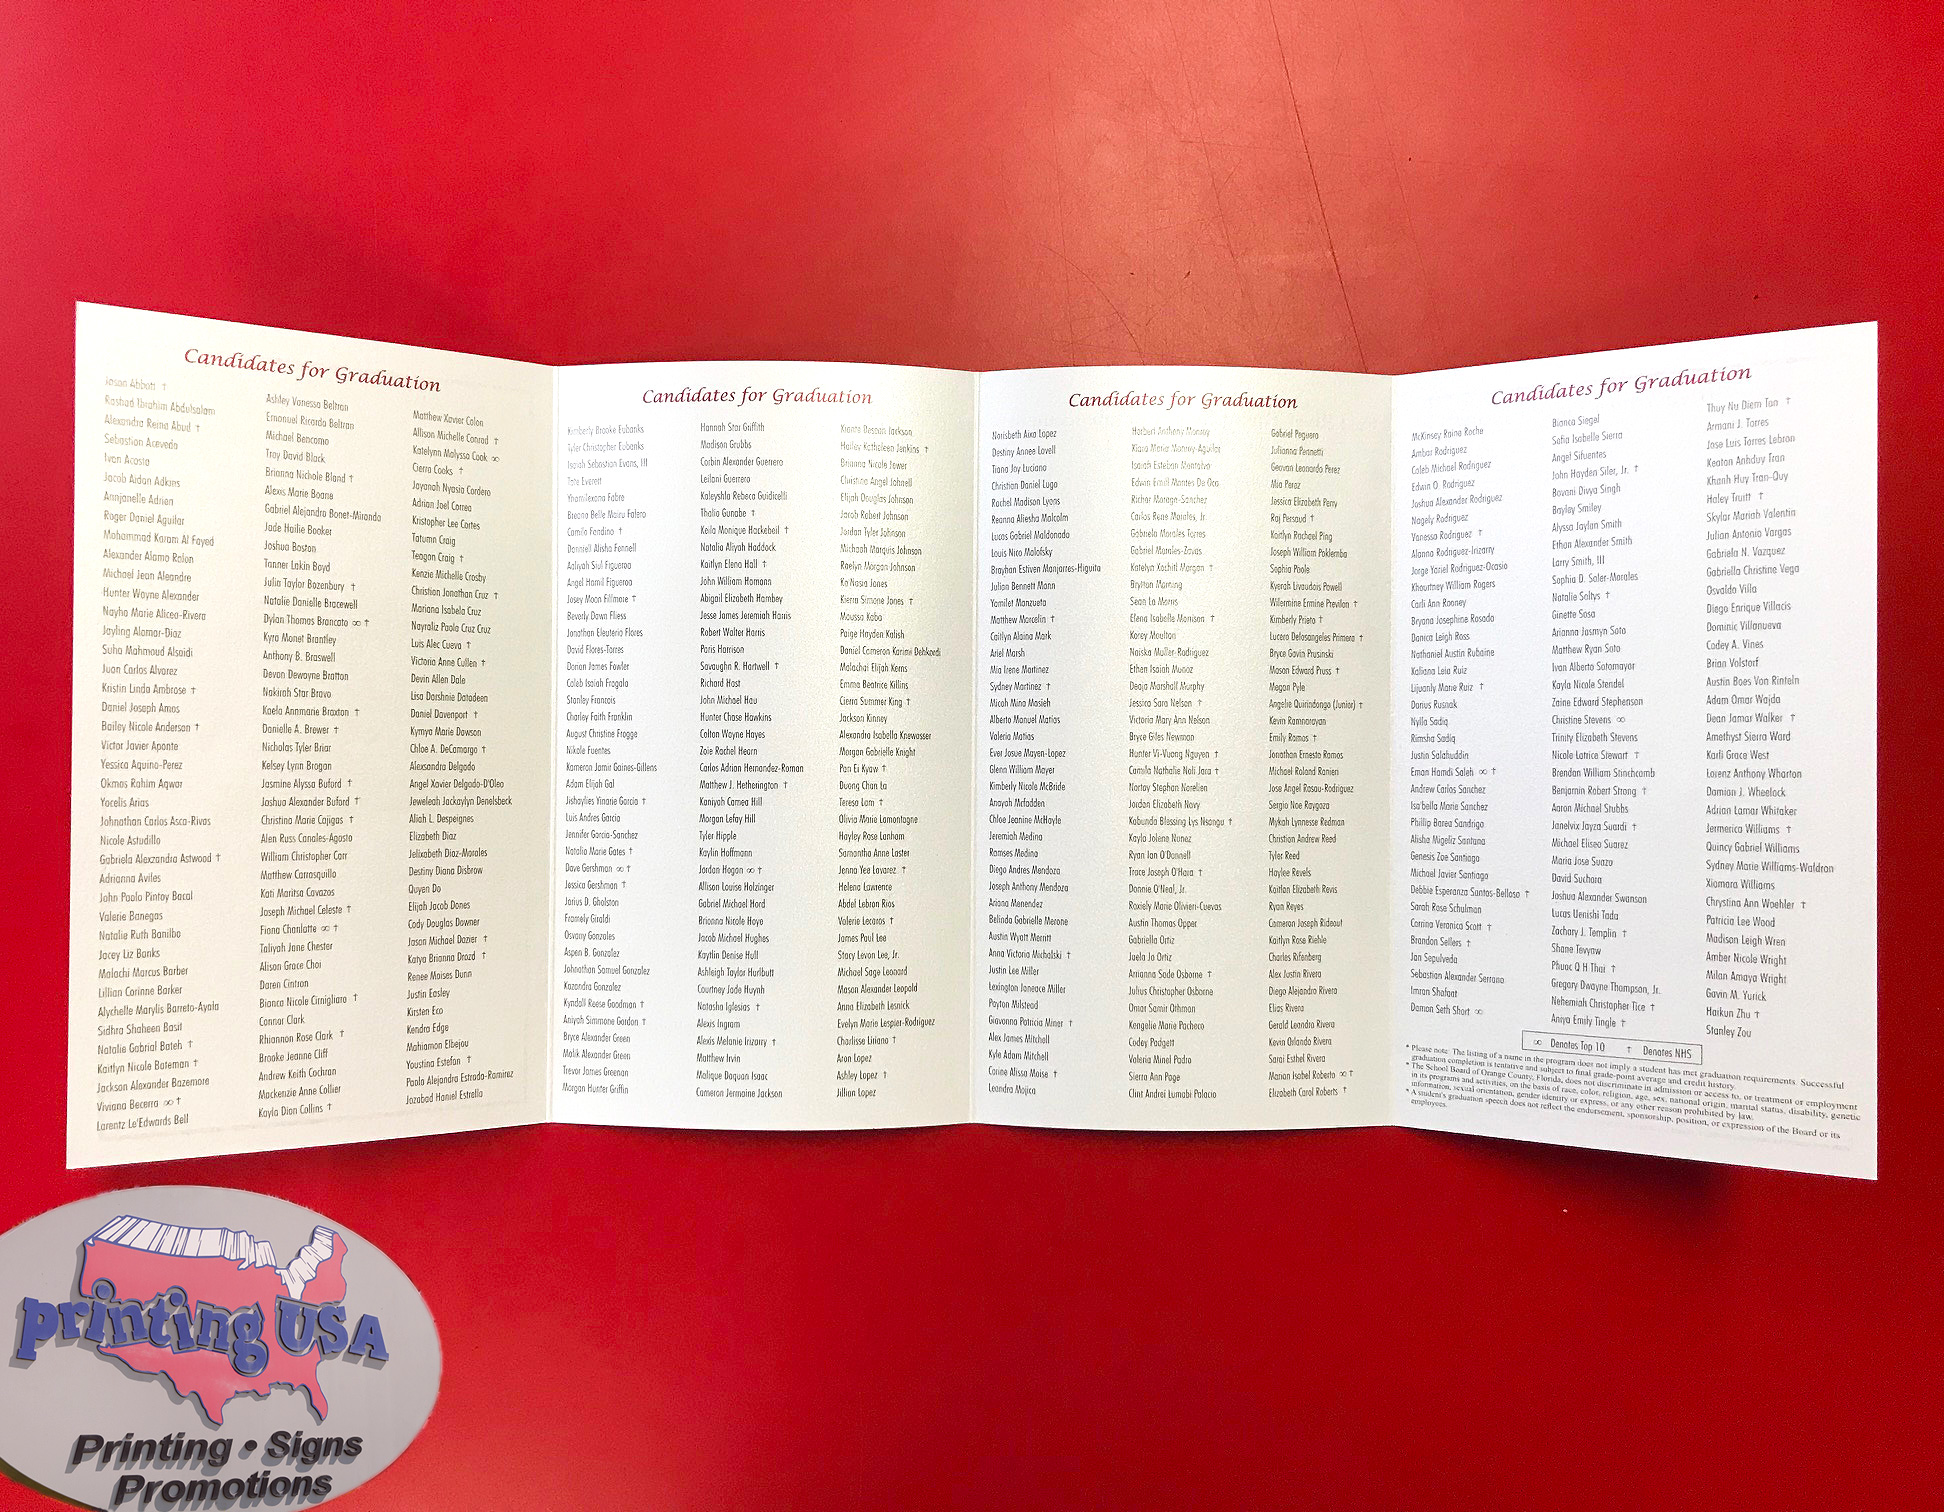 Candidates for Graduation
Jason Abbott †
Rashad Ibrahim Abdulsalam
Alexandra Rema Abud †
Sebastian Acevedo
Ivan Acosta
Jacob Aidan Adkins
Annjanelle Adrien
Roger Daniel Aguilar
Mohammad Karam Al Fayed
Alexander Alamo Rolon
Michael Jean Aleandre
Hunter Wayne Alexander
Nayha Marie Alicea-Rivera
Jayling Alomar-Diaz
Suha Mahmoud Alsaidi
Juan Carlos Alvarez
Kristin Linda Ambrose †
Daniel Joseph Amos
Bailey Nicole Anderson †
Victor Javier Aponte
Yessica Aquino-Perez
Okmas Rahim Aqwar
Yocelis Arias
Johnathan Carlos Asca-Rivas
Nicole Astudillo
Gabriela Alexzandra Astwood †
Adrianna Aviles
John Paolo Pintoy Bacal
Valerie Banegas
Natalie Ruth Banilbo
Jacey Liz Banks
Malachi Marcus Barber
Lillian Corinne Barker
Alychelle Marylis Barreto-Ayala
Sidhra Shaheen Basit
Natalie Gabrial Bateh †
Kaitlyn Nicole Bateman †
Jackson Alexander Bazemore
Viviana Becerra ∞ †
Larentz Le'Edwards Bell
Ashley Vanessa Beltran
Emanuel Ricardo Beltran
Michael Bencomo
Troy David Black
Brianna Nichole Bland †
Alexis Marie Boane
Gabriel Alejandro Bonet-Miranda
Jade Hailie Booker
Joshua Boston
Tanner Lakin Boyd
Julia Taylor Bozenbury †
Natalie Danielle Bracewell
Dylan Thomas Brancato ∞ †
Kyra Monet Brantley
Anthony B. Braswell
Devon Dewayne Bratton
Nakirah Star Bravo
Kaela Annmarie Braxton †
Danielle A. Brewer †
Nicholas Tyler Briar
Kelsey Lynn Brogan
Jasmine Alyssa Buford †
Joshua Alexander Buford †
Christina Marie Cajigas †
Alen Russ Canales-Agosto
William Christopher Carr
Matthew Carrasquillo
Kati Maritsa Cavazos
Joseph Michael Celeste †
Fiona Chanlatte ∞ †
Taliyah Jane Chester
Alison Grace Choi
Daren Cintron
Bianca Nicole Cirnigliaro †
Connor Clark
Rhiannon Rose Clark †
Brooke Jeanne Cliff
Andrew Keith Cochran
Mackenzie Anne Collier
Kayla Dian Collins †
Matthew Xavier Colon
Allison Michelle Conrad †
Katelynn Malyssa Cook ∞
Cierra Cooks †
Jayanah Nyasia Cordero
Adrian Joel Correa
Kristopher Lee Cortes
Tatumn Craig
Teagan Craig †
Kenzie Michelle Crosby
Christian Jonathan Cruz †
Mariana Isabela Cruz
Nayraliz Paola Cruz Cruz
Luis Alec Cueva †
Victoria Anne Cullen †
Devin Allen Dale
Lisa Darshnie Datadeen
Daniel Davenport †
Kymya Marie Dawson
Chloe A. DeCamargo †
Alexsandra Delgado
Angel Xavier Delgado-D'Oleo
Jeweleah Jackaylyn Denolsbeck
Aliah L. Despeignes
Elizabeth Diaz
Jelixabeth Diaz-Morales
Destiny Diana Disbrow
Quyen Do
Elijah Jacob Dones
Cody Douglas Downer
Jason Michael Dozier †
Katya Brianna Drozd †
Renee Moises Dunn
Justin Easley
Kirsten Eco
Kendra Edge
Mahiamon Elbejou
Youstina Estefan †
Paola Alejandra Estrada-Ramirez
Jozabad Haniel Estrella
Candidates for Graduation
Kimberly Brooke Eubanks
Tyler Christopher Eubanks
Isaiah Sebastian Evans, III
Tate Everett
Yhamilexana Fabre
Breana Belle Maira Falero
Camila Fandino †
Danniell Alisha Fennell
Aaliyah Siul Figueroa
Angel Hamil Figueroa
Josey Moon Fillmore †
Beverly Dawn Fliess
Jonathan Eleuterio Flores
David Flores-Torres
Dorian James Fowler
Caleb Isaiah Fragala
Stanley Francois
Charley Faith Franklin
August Christine Frogge
Nikole Fuentes
Kameron Jamir Gaines-Gillens
Adam Elijah Gal
Jishaylies Yinarie Garcia †
Luis Andres Garcia
Jennifer Garcia-Sanchez
Natalia Marie Gates †
Dave Gershman ∞ †
Jessica Gershman †
Jarius D. Gholston
Framely Giraldi
Osvany Gonzales
Aspen B. Gonzalez
Johnathan Samuel Gonzalez
Kazandra Gonzalez
Kyndall Reese Goodman †
Aniyah Simmone Gordon †
Bryce Alexander Green
Malik Alexander Green
Trevor James Greenan
Morgan Hunter Griffin
Hannah Star Griffith
Madison Grubbs
Corbin Alexander Guerrero
Leilani Guerrero
Kaleyshla Rebeca Guidicelli
Thalia Gunabe †
Keila Monique Hackebeil †
Natalia Aliyah Haddock
Kaitlyn Elena Hall †
John William Hamann
Abigail Elizabeth Hambey
Jesse James Jeremiah Harris
Robert Walter Harris
Paris Harrison
Savaughn R. Hartwell †
Richard Hast
John Michael Hau
Hunter Chase Hawkins
Colton Wayne Hayes
Zoie Rachel Hearn
Carlos Adrian Hernandez-Roman
Matthew J. Hetherington †
Kaniyah Camea Hill
Morgan Lefay Hill
Tyler Hipple
Kaylin Hoffmann
Jordan Hogan ∞ †
Allison Louise Holzinger
Gabriel Michael Hord
Brianna Nicole Hoye
Jacob Michael Hughes
Kaytlin Denise Hull
Ashleigh Taylor Hurlbutt
Courtney Jade Huynh
Natasha Iglesias †
Alexis Ingram
Alexis Melanie Irizarry †
Matthew Irvin
Malique Daquan Isaac
Cameron Jermaine Jackson
Xionte Deszan Jackson
Hailey Kathaleen Jenkins †
Brianna Nicole Jower
Christina Angel Johnell
Elijah Douglas Johnson
Jacob Robert Johnson
Jordan Tyler Johnson
Michaah Marquis Johnson
Raelyn Morgan Johnson
Ka'Nasia Jones
Kierra Simone Jones †
Moussa Kaba
Paige Hayden Kalish
Daniel Cameron Karimi Dehkordi
Malachai Elijah Kerns
Emma Beatrice Killins
Cierra Summer King †
Jackson Kinney
Alexandra Isabella Knewasser
Morgan Gabrielle Knight
Pan Ei Kyaw †
Duong Chan La
Teresa Lam †
Olivia Marie Lamontagne
Hayley Rose Lanham
Samantha Anne Laster
Jenna Yee Lavarez †
Helena Lawrence
Abdel Lebron Rios
Valerie Lecaros †
James Paul Lee
Stacy Levon Lee, Jr.
Michael Sage Leonard
Mason Alexander Leopold
Anna Elizabeth Lesnick
Evelyn Marie Lespier-Rodriguez
Charlisse Liriano †
Aron Lopez
Ashley Lopez †
Jillian Lopez
Candidates for Graduation
Norisbeth Aixa Lopez
Destiny Annee Lovell
Tiana Joy Luciano
Christian Daniel Lugo
Rachel Madison Lyons
Reanna Aliesha Malcolm
Lucas Gabriel Maldonado
Louis Nico Malofsky
Brayhan Estiven Manjarres-Higuita
Julian Bennett Mann
Yamilet Manzueta
Matthew Marcelin †
Caitlyn Alaina Mark
Ariel Marsh
Mia Irene Martinez
Sydney Martinez †
Micah Mina Masieh
Alberto Manuel Matias
Valeria Matias
Ever Josue Mayen-Lopez
Glenn William Mayer
Kimberly Nicole McBride
Anayah Mcfadden
Chloe Jeanine McHayle
Jeremiah Medina
Ramses Medina
Diego Andres Mendoza
Joseph Anthony Mendoza
Ariana Menendez
Belinda Gabrielle Merone
Austin Wyatt Merritt
Anna Victoria Michalski †
Justin Lee Miller
Lexington Janeace Miller
Payton Milstead
Giavanna Patricia Miner †
Alex James Mitchell
Kyle Adam Mitchell
Corine Alissa Moise †
Leandra Mojica
Herbert Anthony Monroy
Xiara Maria Monroy-Aguilar
Isaiah Esteban Montalvo
Edwin Emill Montes De Oca
Richer Moraga-Sanchez
Carlos Rene Morales, Jr.
Gabriela Morales Torres
Gabriel Morales-Zavas
Katelyn Xochitl Morgan †
Brylton Morning
Sean La Morris
Elena Isabelle Morrison †
Korey Moulton
Naiska Muller-Rodriguez
Ethen Isaiah Munoz
Deaja Marshall Murphy
Jessica Sara Nelson †
Victoria Mary Ann Nelson
Bryce Giles Newman
Hunter Vi-Vuong Nguyen †
Camila Nathalie Noli Jara †
Nartay Stephan Norelien
Jordan Elizabeth Novy
Kabunda Blessing Lys Nsongu †
Kayla Jolene Nunez
Ryan Ian O'Donnell
Trace Joseph O'Hara †
Donnie O'Neal, Jr.
Roxiely Marie Olivieri-Cuevas
Austin Thomas Opper
Gabriella Ortiz
Juela Jo Ortiz
Arrianna Sade Osborne †
Julius Christopher Osborne
Omar Samir Othman
Kengelie Marie Pacheco
Codey Padgett
Valeria Minel Padro
Sierra Ann Page
Clint Andrei Lumabi Palacio
Gabriel Peguero
Julianna Pennetti
Geovan Leonardo Perez
Mia Peraz
Jessica Elizabeth Perry
Raj Persaud †
Kaitlyn Rachael Ping
Joseph William Poklemba
Sophia Poole
Kyerah Livaudais Powell
Willermine Ermine Previlon †
Kimberly Prieto †
Lucero Delosangeles Primera †
Bryce Gavin Prusinski
Mason Edward Pruss †
Megan Pyle
Angelie Quirindongo (Junior) †
Kevin Ramnarayan
Emily Ramos †
Jonathan Ernesto Ramos
Michael Roland Ranien
Jose Angel Rosau-Rodriguez
Sergio Noe Raygoza
Mykah Lynnesse Redman
Christian Andrew Reed
Tyler Reed
Haylee Revels
Kaitlan Elizabeth Revis
Ryan Reyes
Cameron Joseph Rideout
Kaitlyn Rose Riehle
Charles Rifenberg
Alex Justin Rivera
Diego Alejandro Rivera
Elias Rivera
Gerald Leandro Rivera
Kevin Orlando Rivera
Sarai Esthel Rivera
Marian Isabel Roberto ∞ †
Elizabeth Carol Roberts †
Candidates for Graduation
McKinsey Raina Roche
Ambar Rodriguez
Caleb Michael Rodriguez
Edwin O. Rodriguez
Joshua Alexander Rodriguez
Nagely Rodriguez
Vanessa Rodriguez †
Alanna Rodriguez-Irizarry
Jorge Yariel Rodriguez-Ocasio
Khourtney William Rogers
Carli Ann Rooney
Bryana Josephine Rosado
Danica Leigh Ross
Nathaniel Austin Rubaine
Kaliana Leia Ruiz
Lijuanly Marie Ruiz †
Darius Rusnak
Nylla Sadiq
Rimsha Sadiq
Justin Salahuddin
Eman Hamdi Saleh ∞ †
Andrew Carlos Sanchez
Isa'bella Marie Sanchez
Phillip Barea Sandrigo
Alisha Migeliz Santana
Genesis Zoe Santiago
Michael Javier Santiago
Debbie Esperanza Santos-Belloso †
Sarah Rose Schulman
Corrina Veronica Scott †
Brandon Sellers †
Jan Sepulveda
Sebastian Alexander Serrano
Imran Shafaat
Damon Seth Short ∞
Bianca Siegel
Sofia Isabelle Sierra
Angel Sifuentes
John Hayden Siler, Jr. †
Bovani Divya Singh
Bayley Smiley
Alyssa Jaylan Smith
Ethan Alexander Smith
Larry Smith, III
Sophia D. Soler-Morales
Natalie Soltys †
Ginette Sosa
Arianna Jasmyn Soto
Matthew Ryan Soto
Ivan Alberto Sotomayor
Kayla Nicole Stendel
Zaine Edward Stephenson
Christine Stevens ∞
Trinity Elizabeth Stevens
Nicole Latrice Stewart †
Brendan William Stinchcomb
Benjamin Robert Strong †
Aaron Michael Stubbs
Janelvix Jayza Suardi †
Michael Eliseo Suarez
Maria Jose Suazo
David Suchora
Joshua Alexander Swanson
Lucas Uenishi Tada
Zachary J. Templin †
Shane Tevyaw
Phuoc Q H Thai †
Gregory Dwayne Thompson, Jr.
Nehemiah Christopher Tice †
Aniya Emily Tingle †
Thuy Nu Diem Ton †
Armani J. Torres
Jose Luis Torres Lebron
Keaton Anhduy Tran
Khanh Huy Tran-Quy
Haley Truitt †
Skylar Mariah Valentin
Julian Antonio Vargas
Gabriela N. Vazquez
Gabriella Christine Vega
Osvaldo Villa
Diego Enrique Villacis
Dominic Villanueva
Codey A. Vines
Brian Volstorf
Austin Boes Von Rinteln
Adam Omar Wajda
Dean Jamar Walker †
Amethyst Sierra Ward
Karli Grace West
Lorenz Anthony Wharton
Damian J. Wheelock
Adrian Lamar Whitaker
Jermerica Williams †
Quincy Gabriel Williams
Sydney Marie Williams-Waldron
Xiomara Williams
Chrystina Ann Woehler †
Patricia Lee Wood
Madison Leigh Wren
Amber Nicole Wright
Milan Amaya Wright
Gavin M. Yurick
Haikun Zhu †
Stanley Zou
∞ Denotes Top 10 † Denotes NHS
* Please note: The listing of a name in the program does not imply a student has met graduation requirements. Successful
graduation completion is tentative and subject to final grade-point average and credit history.
* The School Board of Orange County, Florida, does not discriminate in admission or access to, or treatment or employment
in its programs and activities, on the basis of race, color, religion, age, sex, national origin, marital status, disability, genetic
information, sexual orientation, gender identity or express, or any other reason prohibited by law.
* A student's graduation speech does not reflect the endorsement, sponsorship, position, or expression of the Board or its
employees.
printing USA
Printing • Signs
Promotions